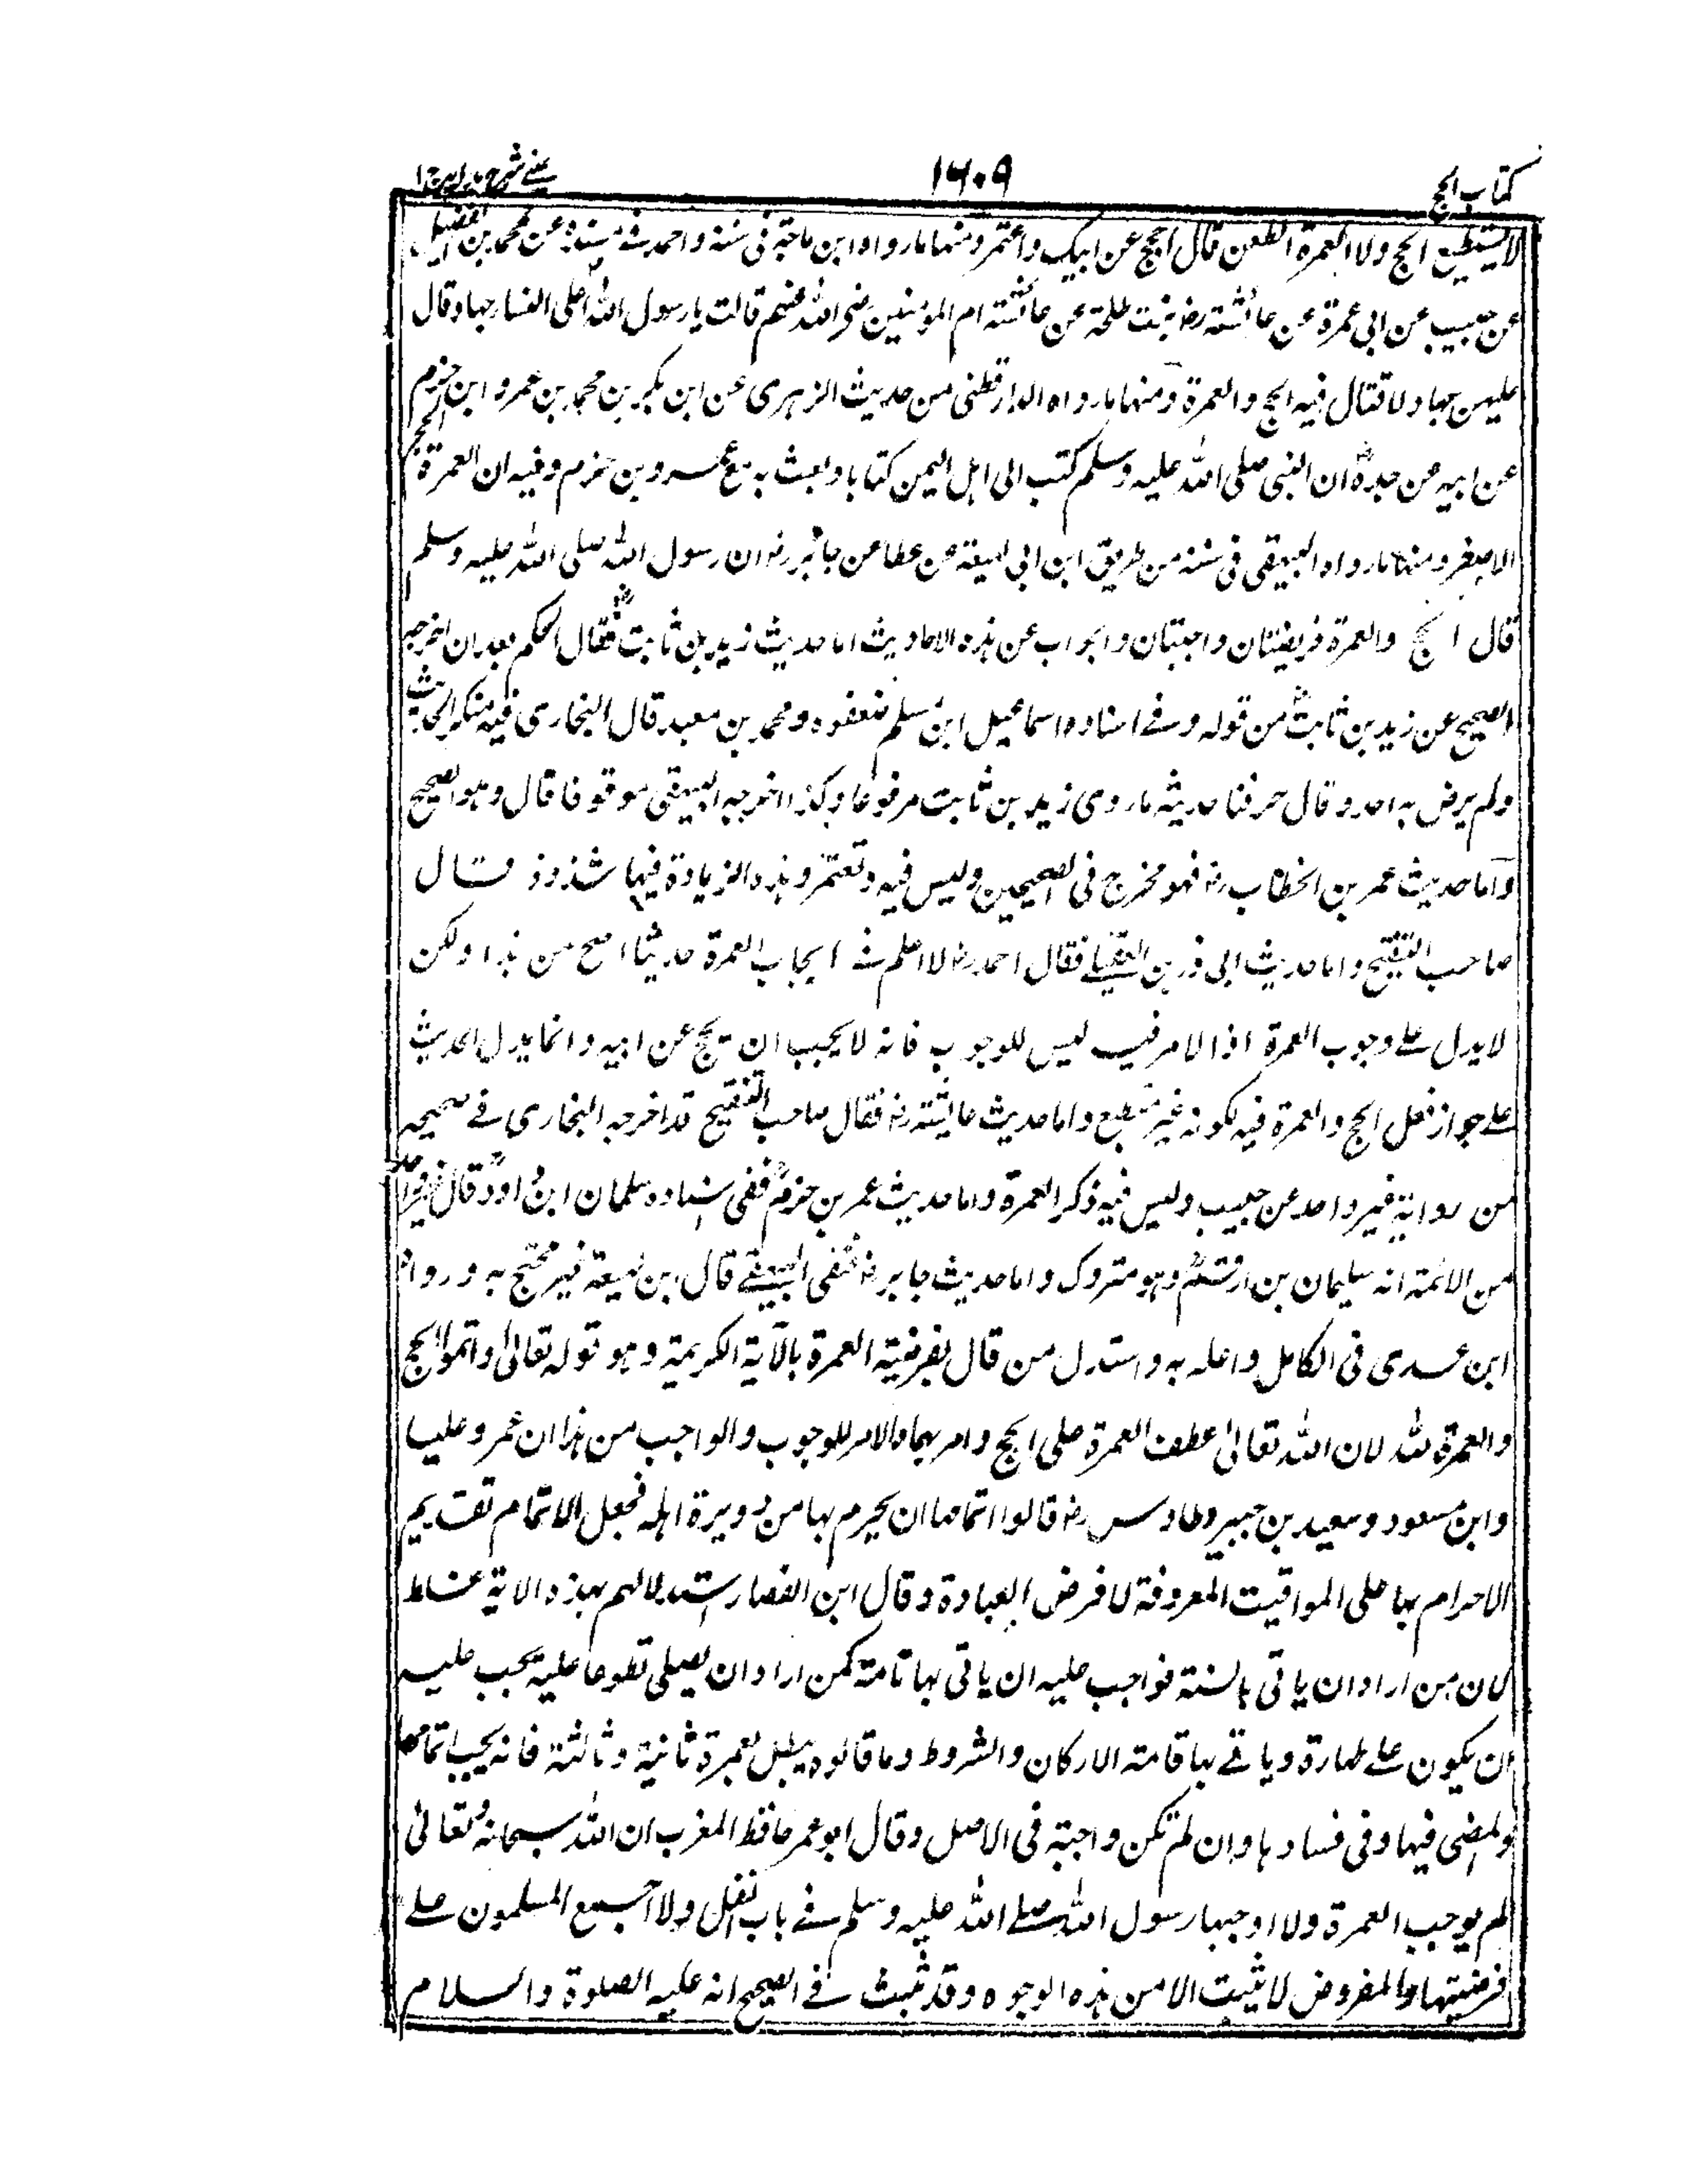 كتاب الحج ١٦٠٩ عيني شرح هداية ج ١
لا يستطيع الحج ولا العمرة الظعن قال احجج عن ابيك واعتمر ومنها ما رواه ابن ماجة في سننه واحمد في مسنده عن محمد بن الفضيل
عن حبيب عن ابي عمرة عن عائشة رض بنت طلحة عن عائشة ام المؤمنين رضي الله عنهم قالت يا رسول الله اعلى النساء جهاد قال
عليهن جهاد لا قتال فيه الحج والعمرة ومنها ما رواه الدارقطني من حديث الزهري عن ابن بكر بن محمد بن عمرو ابن حزم
عن ابيه عن جده ان النبي صلى الله عليه وسلم كتب الى اهل اليمن كتابا وبعث به مع عمرو بن حزم وفيه ان العمرة الحج
الاصغر ومنها ما رواه البيهقي في سننه من طريق ابن ابي لهيعة عن عطا عن جابر رض ان رسول الله صلى الله عليه وسلم
قال الحج والعمرة فريضتان واجبتان والجواب عن هذه الاحاديث اما حديث زيد بن ثابت فقال الحاكم بعد ان اخرجه
الصحيح عن زيد بن ثابت من قوله وفي اسناده اسماعيل ابن مسلم ضعفوه ومحمد بن سعيد قال البخاري فيه منكر الحديث
ولم يرض به احد وقال حرفنا حديثه ما روى زيد بن ثابت مرفوعا وكذا اخرجه البيهقي موقوفا قال وهو الصحيح
واما حديث عمر بن الخطاب رض فهو مخرج في الصحيحين وليس فيه وتعتمر وهذه الزيادة فيها شذوذ قال
صاحب التنقيح واما حديث ابي ذر بن العقيلي فقال احمد رض لا اعلم في ايجاب العمرة حديثا اصح من هذا ولكن
لا يدل على وجوب العمرة اذا الامر فيه ليس للوجوب فانه لا يجب ان يحج عن ابيه وانما يدل الحديث
على جواز فعل الحج والعمرة فيه لكونه غير مستطيع واما حديث عائشة رض فقال صاحب التنقيح قد اخرجه البخاري في صحيحه
من رواية غير واحد عن حبيب وليس فيه ذكر العمرة واما حديث عمر بن حزم ففي اسناده سلمان ابن داود قال غير واحد
من الائمة انه سليمان بن ارقم وهو متروك واما حديث جابر رض ففي البيهقي قال ابن لهيعة غير محتج به ورواه
ابن عدى في الكامل واعله به واستدل من قال بفرضية العمرة بالآية الكريمة وهو قوله تعالى واتموا الحج
والعمرة لله لان الله تعالى عطف العمرة على الحج وامر بهما والامر للوجوب والواجب من هذا ان عمر وعليا
وابن مسعود وسعيد بن جبير وطاؤس رض قالوا اتمامها ان يحرم بها من دويرة اهله فجعل الاتمام تقديم
الاحرام بها على المواقيت المعروفة لا فرض العبادة وقال ابن القصار استدلالهم بهذه الاية غلط
لان من اراد ان ياتى بالسنة فواجب عليه ان ياتى بها تامة كمن اراد ان يصلى تطوعا عليه يجب عليه
ان يكون على طهارة وياتى بها قامة الاركان والشروط وما قالوه يبطل بعمرة ثانية وثالثة فانه يجب اتمامها
والمضى فيها وفى فسادها وان لم تكن واجبة في الاصل وقال ابو عمر حافظ المغرب ان الله سبحانه وتعالى
لم يوجب العمرة ولا اوجبها رسول الله صلى الله عليه وسلم في باب النفل ولا اجمع المسلمون على
فرضيتها والمفروض لا يثبت الا من هذه الوجوه وقد ثبت في الصحيح انه عليه الصلوة والسلام